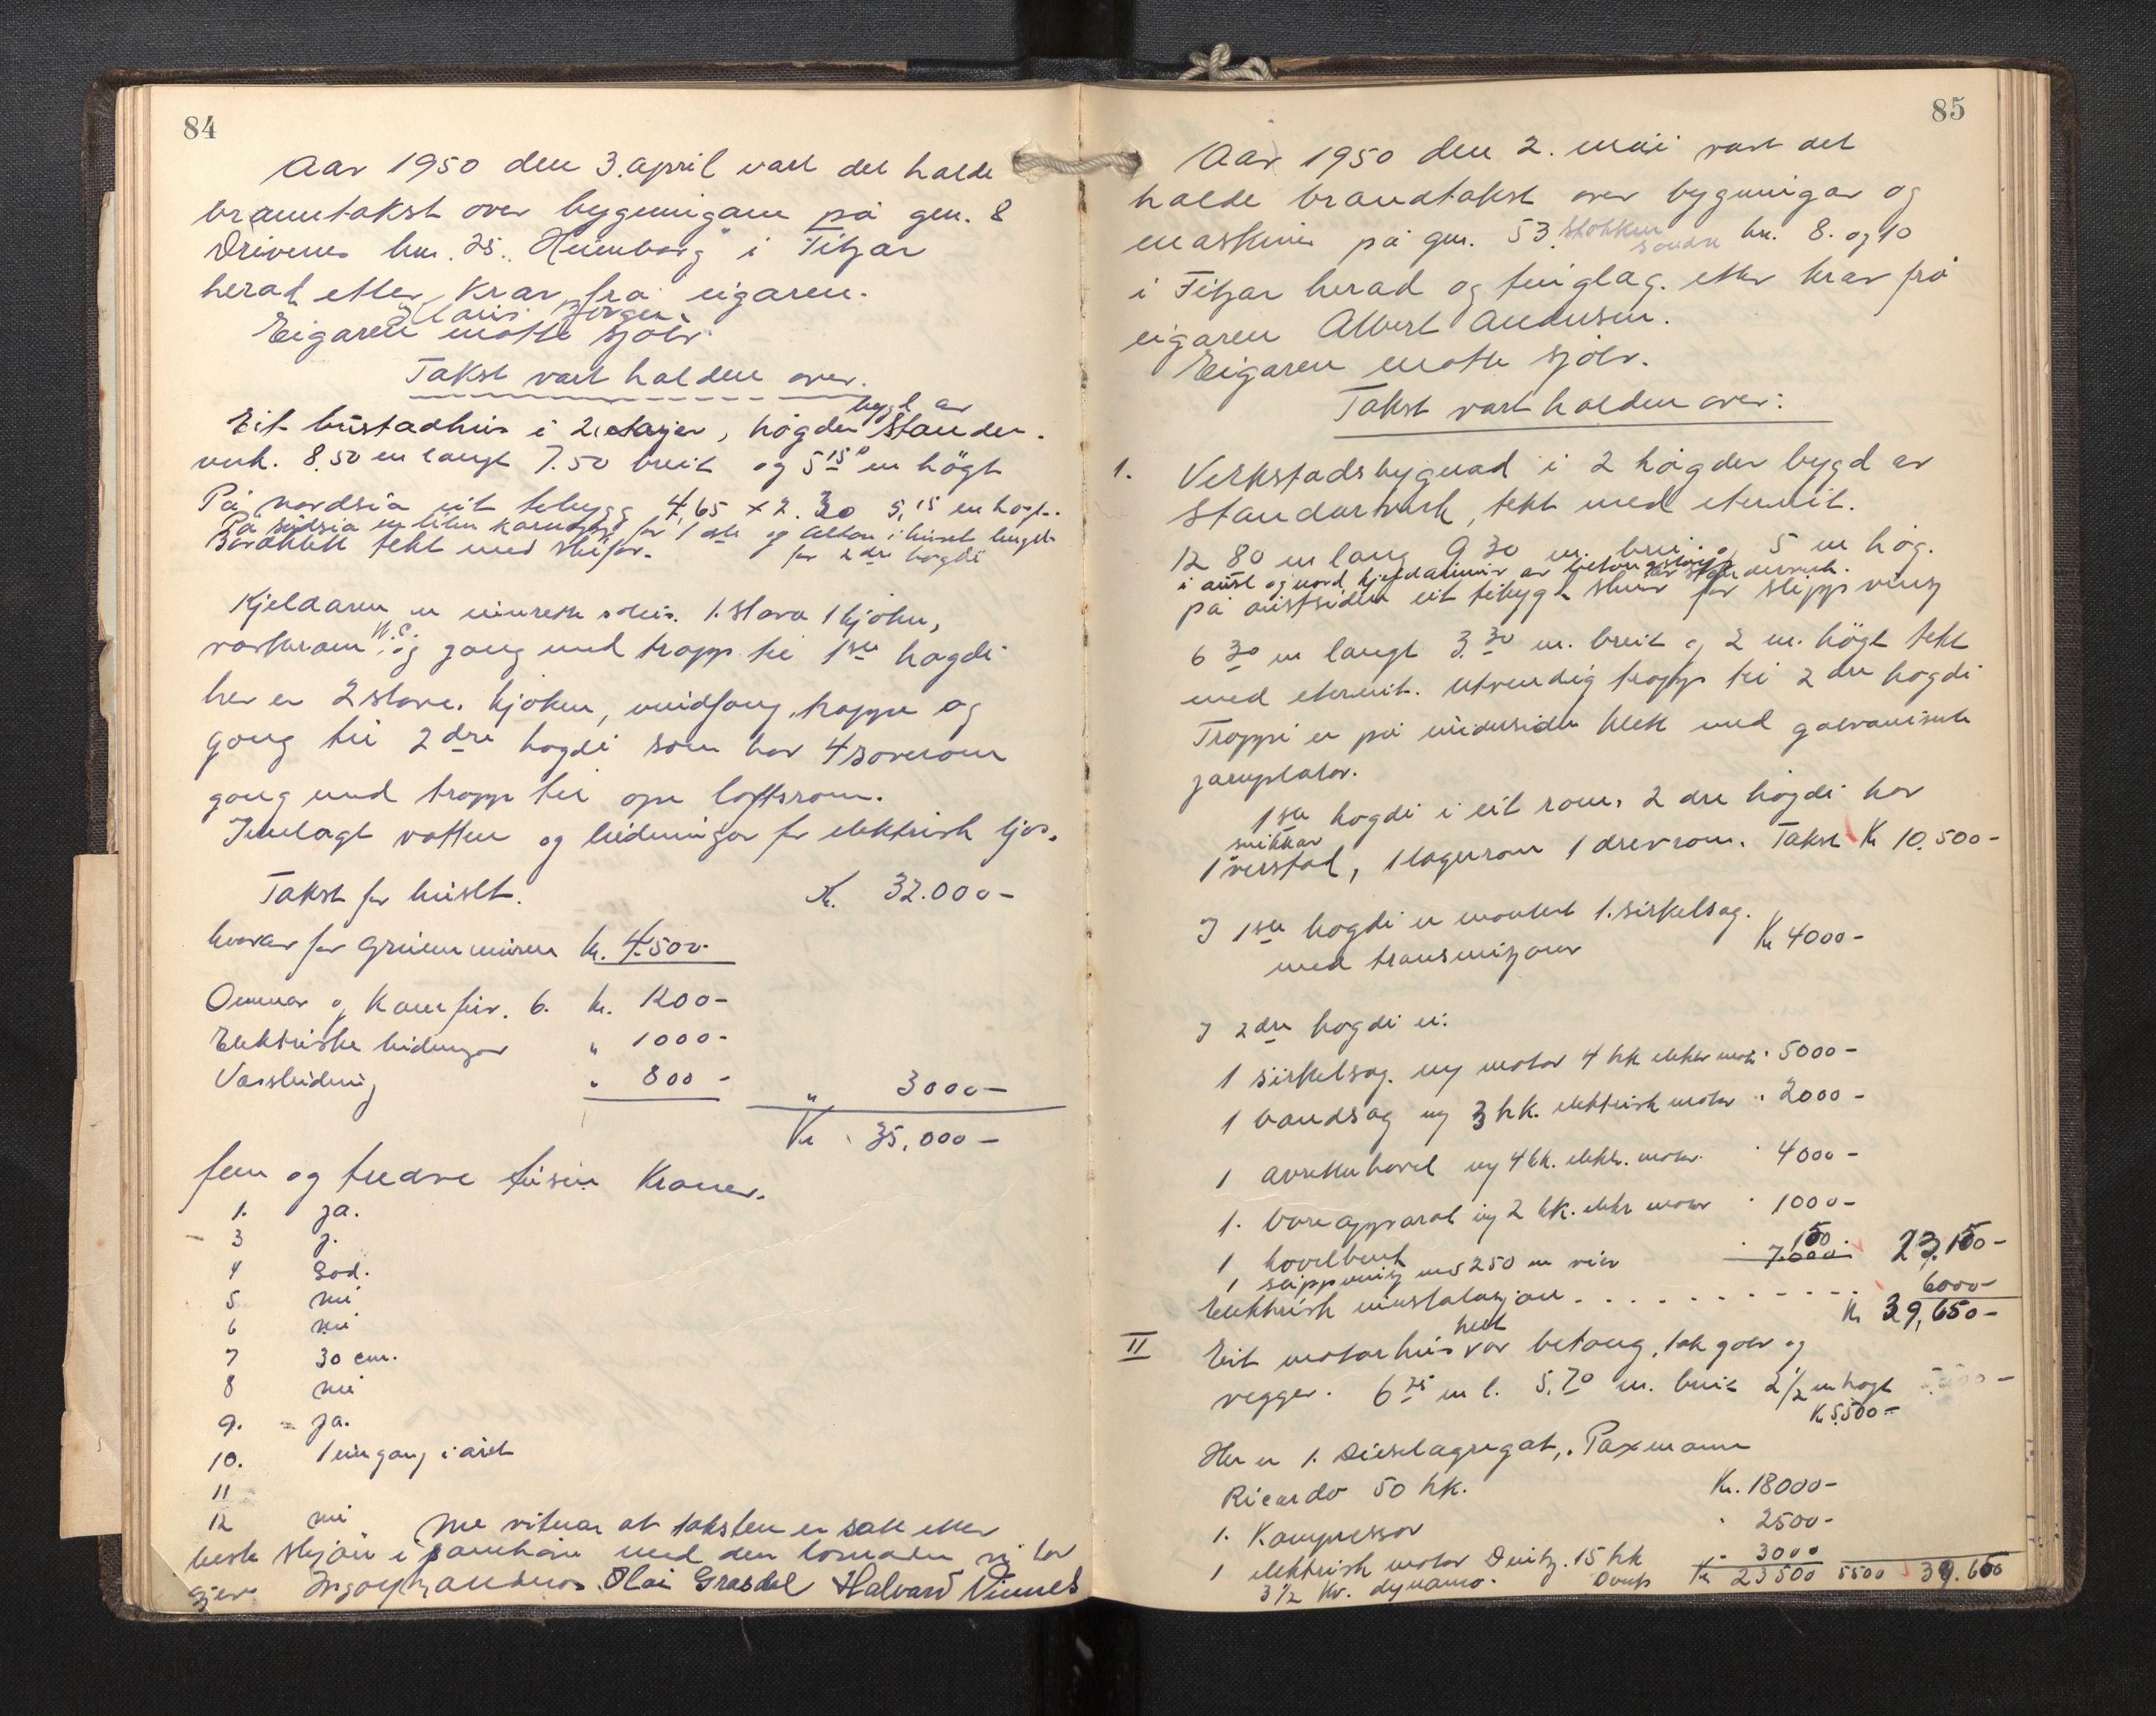 84
Aar 1950 den 3. april vart det halde
branntakst over bygningane på gnr. 8
Drivenes bnr. 25. "Heimborg" i Fitjar
herad etter krav frå eigaren.
Eigaren møtte sjølv.
Takst vart halden over.
bygd av
Eit bustadhus i 2 etasjer, høgder stander-
verk. 8.50 m langt 7.50 breit og 5 15 m högt
På nordsia eit tebygg 4,65 x 2.30 5,15 m høgt.
På sudsia en liten karnapp for 1 ste og altan i huset lengde
tekt med skifer. for 2 dre høgdi
Kjeldaren er innreia 1. stova 1 kjøken,
vaskerom W.C. og gong med trapp til 1ste høgdi
her er 2 stove. kjøken, vindfong, trappe og
gong til 2 dre høgdi som har 4 soverom
gong med trapp til ope loftsrom.
Innlagt vatten og leidningar for elektrisk ljos.
Takst for huset. Kr. 32.000-
hvorav for grunnmuren kr. 4500-
Omnar og Kamfur. 6. kr. 1200-
Elektriske leidningar " 1000-
Vassleidning " 800- " 3000-
Kr 35,000-
fem og tredve tusen Kroner.
1. ja.
3 j.
4 God.
5 nei
6 nei
7 30 cm.
8 nei
9. = ja.
10. 1 ein gang i året
11
12 nei Me vitnar at taksten er satt etter
beste skjøn i samhøve med den lovnaden vi har
gjev. Olai Grasdal Halvard Vinnes
85
Aar 1950 den 2. mai vart det
halde brandtakst over bygningar og
maskiner på gnr. 53 Stokken søndre bn. 8. og 10
i Fitjar herad og tinglag. etter krav frå
eigaren Albert Andersen.
Eigaren møtte sjölv.
Takst vart halden over:
1. Verkstadsbygnad i 2 høgder bygd av
Standarverk, tekt med eternit.
12 80 m lang 9 30 m. brei og 5 m høg.
i aust og nord kjeldarmur av betong
på austsiden eit tibygt skur for slippving
6 30 m langt 3.30 m. breit og 2 m. högt tekt
med eternit. Utvendig trapp til 2 dre høgdi
Trappi er på undersiden klett med galvaniserte
jarnplator.
1 ste høgdi i eit rom, 2 dre høgdi har
snikkar
1 verstad, 1 lagerrom 1 drevrom. Takst Kr 10.500-
I 1 ste høgdi er montert 1. sirkelsag.
med transmisjoner Kr 4000-
I 2 dre høgdi er:
1 sirkelsag. m/ motor 4 hk elektr moto " 5000-
1 bandsag m/ 3 hk. elektrisk motor " 2000-
1 avrettarhøvel m/ 4 hk. elektr. motor. " 4000-
1. boreapparat m/ 2 hk. elektr motor " 1000-
1 høvelbenk 150 23,150-
1 slippving m 250 m vier 7.000
Elektrisk installasjon . . . . . . . . . . . 6000-
Kr 39,650-
II Eit motorhus heilt av betong, tak golv og
vegger. 6 25 m l. 5.70 m. breit 2 1/2 m høgt
Kr 5,500-
Her er 1. Dieselagregat,. Paxmann
Ricardo 50 hk. Kr. 18000-
1. Kompressor " 2500-
1 elektrisk motor Deutz. 15 hk " 3000
3 1/2 Kv. dynamo. Kr 23500 5500 39.650